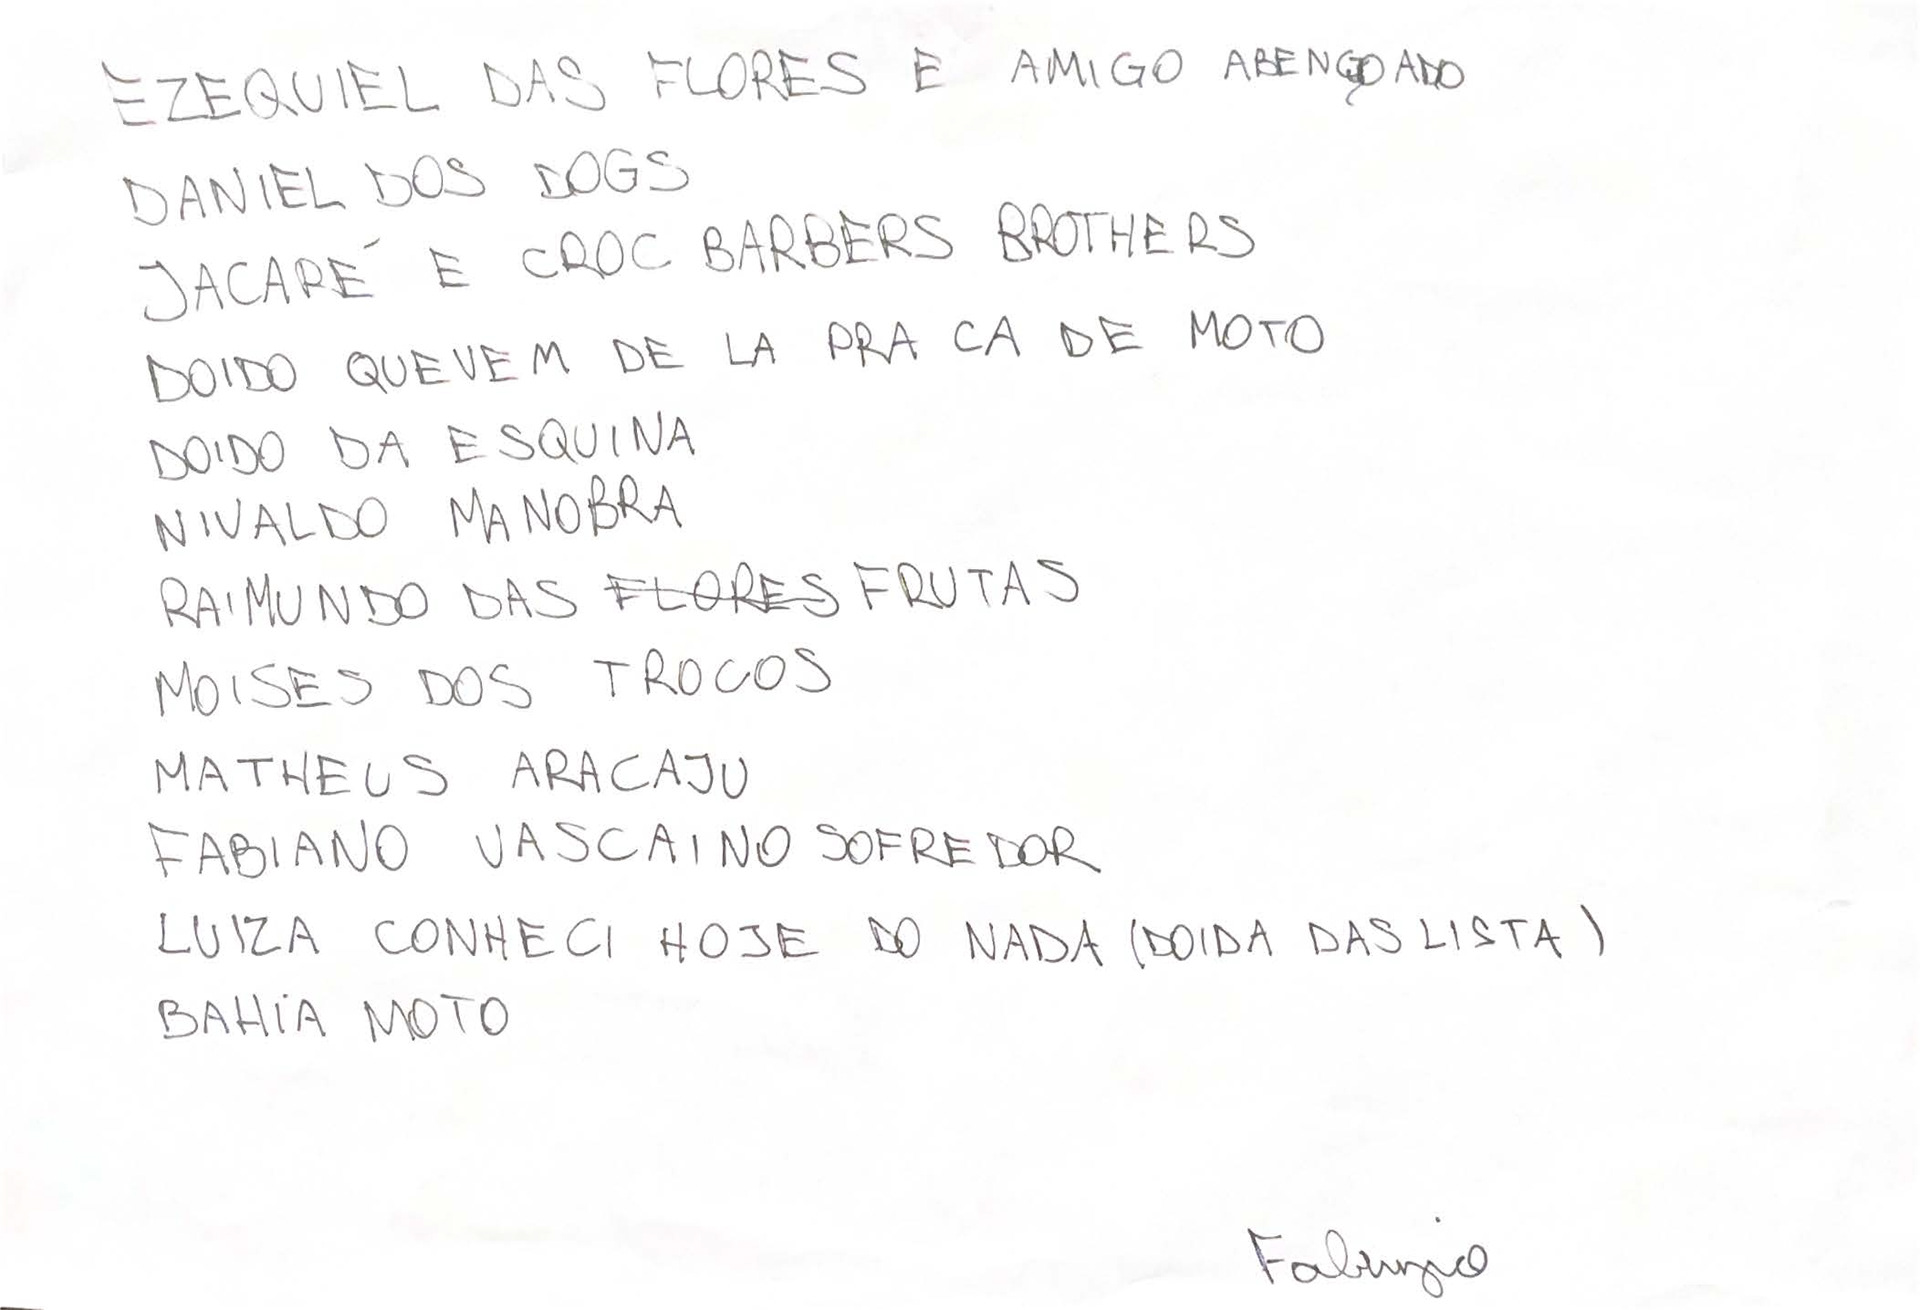 EZEQUIEL DAS FLORES E AMIGO ABENÇOADO
DANIEL DOS DOGS
JACARÉ E CROC BARBERS BROTHERS
DOIDO QUEVEM DE LA PRA CA DE MOTO
DOIDO DA ESQUINA
NIVALDO MANOBRA
RAIMUNDO DAS FLORES FRUTAS
MOISES DOS TROCOS
MATHEUS ARACAJU
FABIANO VASCAINO SOFREDOR
LUIZA CONHECI HOJE DO NADA (DOIDA DAS LISTA)
BAHIA MOTO
Fabrizio